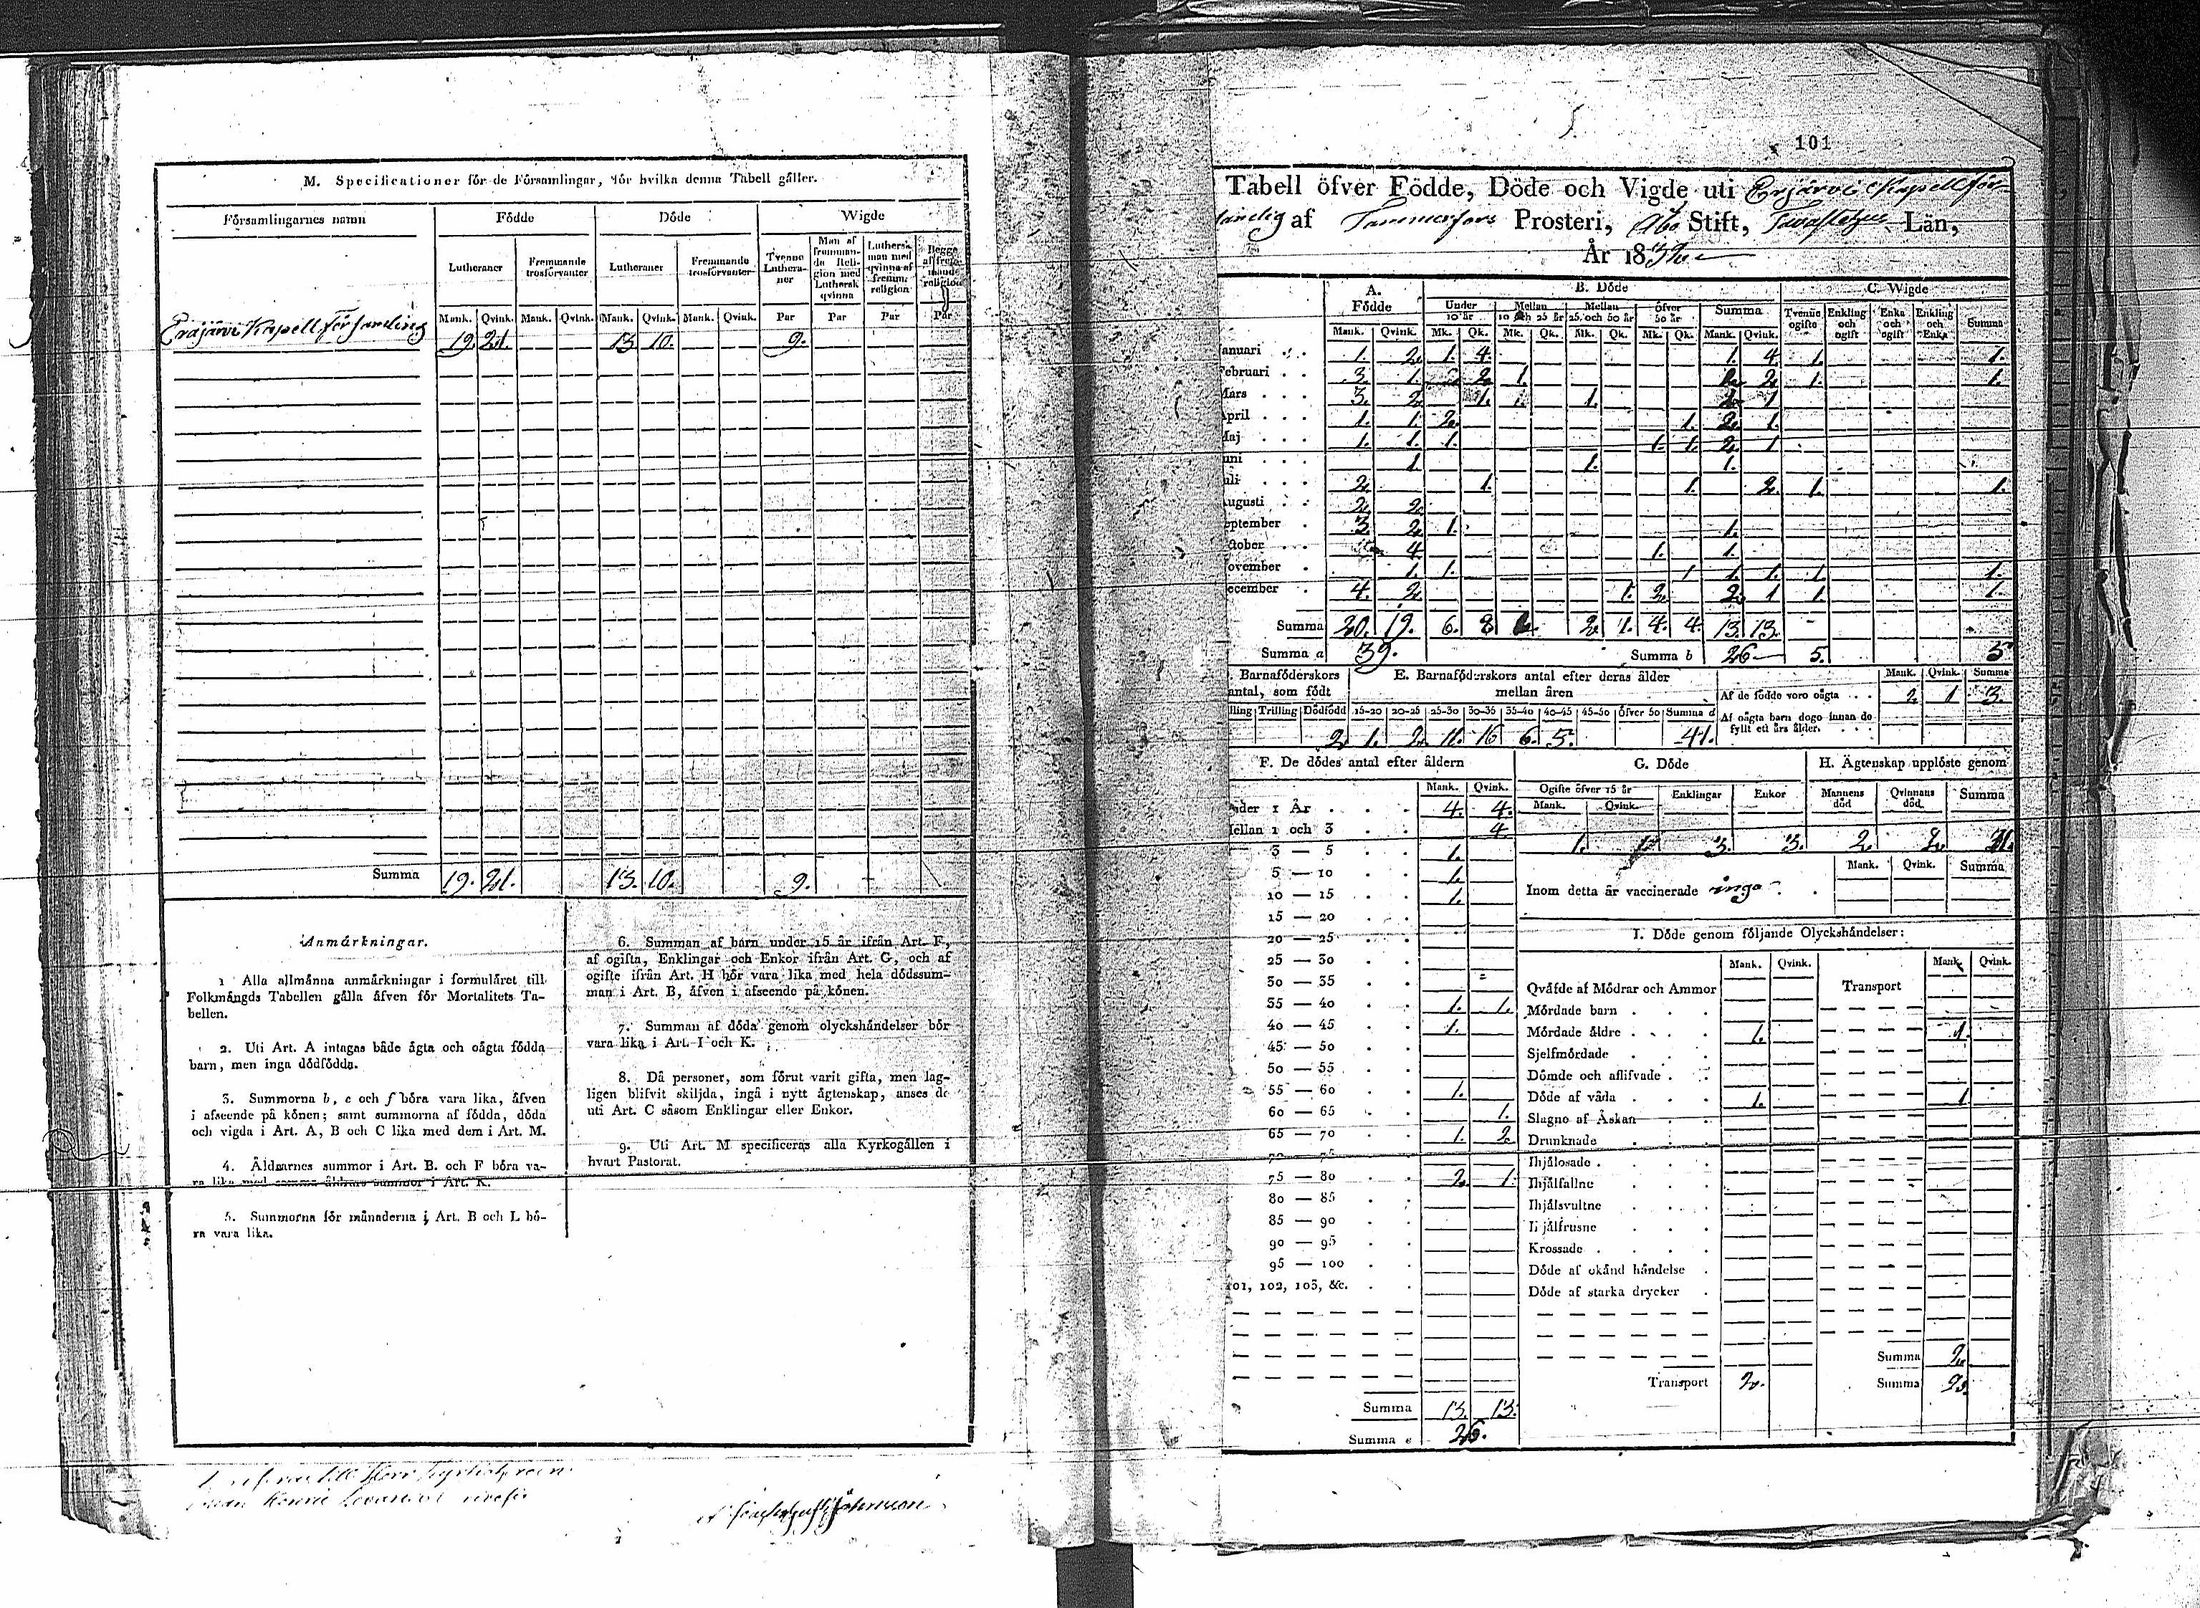 M. Specificationer för de Församlingar, för hvilka denna Tabell gäller.
Församlingarnes namn Födde Döde Wigde
Lutheraner Fremmande trosförvanter Lutheraner Fremmande trosförvanter Tvenne Lutheraner Man af fremmande Religion med Luthersk qvinna Luthersk man med qvinna af fremm: religion Begge af fremmande religion
Mank. Qvink. Mank. Qvink. Mank. Qvink. Mank. Qvink. Par Par Par Par
Eräjärvi Kapell Församling 19. 21. 13 10. 9.
Summa 19. 21. 13. 10. 9.
Anmärkningar.
1 Alla allmänna anmärkningar i formuläret till
Folkmängds Tabellen gälla äfven för Mortalitets Ta-
bellen.
2. Uti Art. A intagas både ägta och oägta födda
barn, men inga dödfödda.
3. Summorna b, e och f böra vara lika, äfven
i afseende på könen; samt summorna af födda, döda
och vigda i Art. A, B och C lika med dem i Art. M.
4. Åldrarnes summor i Art. B. och F böra va-
ra lika med samma åldrars summor i Art. K.
5. Summorna för månaderna i Art. B och L bö-
ra vara lika.
6. Summan af barn under 15 år ifrån Art. F,
af ogifta, Enklingar och Enkor ifrån Art. G, och af
ogifte ifrån Art. H bör vara lika med hela dödssum-
man i Art. B, äfven i afseende på könen.
7. Summan af döda genom olyckshändelser bör
vara lika i Art. I och K.
8. Då personer, som förut varit gifta, men lag-
ligen blifvit skiljda, ingå i nytt ägtenskap, anses de
uti Art. C såsom Enklingar eller Enkor.
9. Uti Art. M specificeras alla Kyrkogällen i
hvart Pastorat.
101
Tabell öfver Födde, Döde och Vigde uti Erjärvi Kapell för-
samlig af Tammerfors Prosteri, Åbo Stift, Tavastehus Län,
År 18
A. Födde B. Döde C. Wigde
Under 10 år Mellan 10 och 25 år Mellan 25 och 50 år Öfver 50 år Summa Tvenne ogifte Enkling och ogift Enka och ogift Enkling och Enka Summa
Mank. Qvink. Mk. Qk. Mk. Qk. Mk. Qk. Mk. Qk. Mank. Qvink.
anuari 1. 2. 1. 4. 1. 4. 1. 1.
ebruari 3. 1. 2. 1. 2. 1. 1.
Mars 3. 2. 1. 1. 1. 1
April 1. 1. 2. 1. 2. 1.
Maj 1. 1. 1. 1. 1. 2. 1
uni 1. 1. 1.
uli 2. 1. 1. 2. 1. 1.
ugusti 2. 2.
eptember 3. 2. 1. 1.
ctober 4. 1. 1.
ovember 1. 1. 1 1. 1. 1. 1.
ecember 4. 2. 1. 2. 2. 1 1. 1.
Summa 20. 19. 6. 8 2. 1. 4. 4. 13. 13.
Summa a 39. Summa b 26 5. 5
. Barnaföderskors antal, som födt
lling Trilling Dödfödd
2.
E. Barnaföderskors antal efter deras ålder mellan åren
15-20 20-25 25-30 30-35 35-40 40-45 45-50 öfver 50 Summa d
1. 2. 11. 16 6. 5. 41.
Mank. Qvink. Summa
Af de födde voro oägta 2. 1 3.
Af oägta barn dogo innan de fyllt ett års ålder.
F. De dödes antal efter åldern
Mank. Qvink.
nder 1 År 4. 4.
ellan 1 och 3 4
3 — 5 1.
5 — 10 1.
10 — 15 1.
15 — 20
20 — 25
25 — 30
30 — 35
35 — 40 1. 1.
40 — 45 1.
45 — 50
50 — 55
55 — 60 1.
60 — 65 1.
65 — 70 1. 2.
70 — 75
75 — 80 2. 1.
80 — 85
85 — 90
90 — 95
95 — 100
101, 102, 103, &c.
Summa 13. 13.
Summa e 26.
G. Döde
Ogifte öfver 15 år Enklingar Enkor
Mank. Qvink.
1. 1 3. 3.
H. Ägtenskap upplöste genom
Mannens död Qvinnans död Summa
2. 2.
Mank. Qvink. Summa
Inom detta år vaccinerade inga
I. Döde genom följande Olyckshändelser:
Mank. Qvink. Mank. Qvink.
Qväfde af Mödrar och Ammor Transport
Mördade barn
Mördade äldre 1. 1.
Sjelfmördade
Dömde och aflifvade
Döde af våda 1. 1
Slagne af Åskan
Drunknade
Ihjälosade
Ihjälfallne
Ihjälsvultne
Ihjälfrusne
Krossade
Döde af okänd händelse
Döde af starka drycker
Summa 2.
Transport 2. Summa